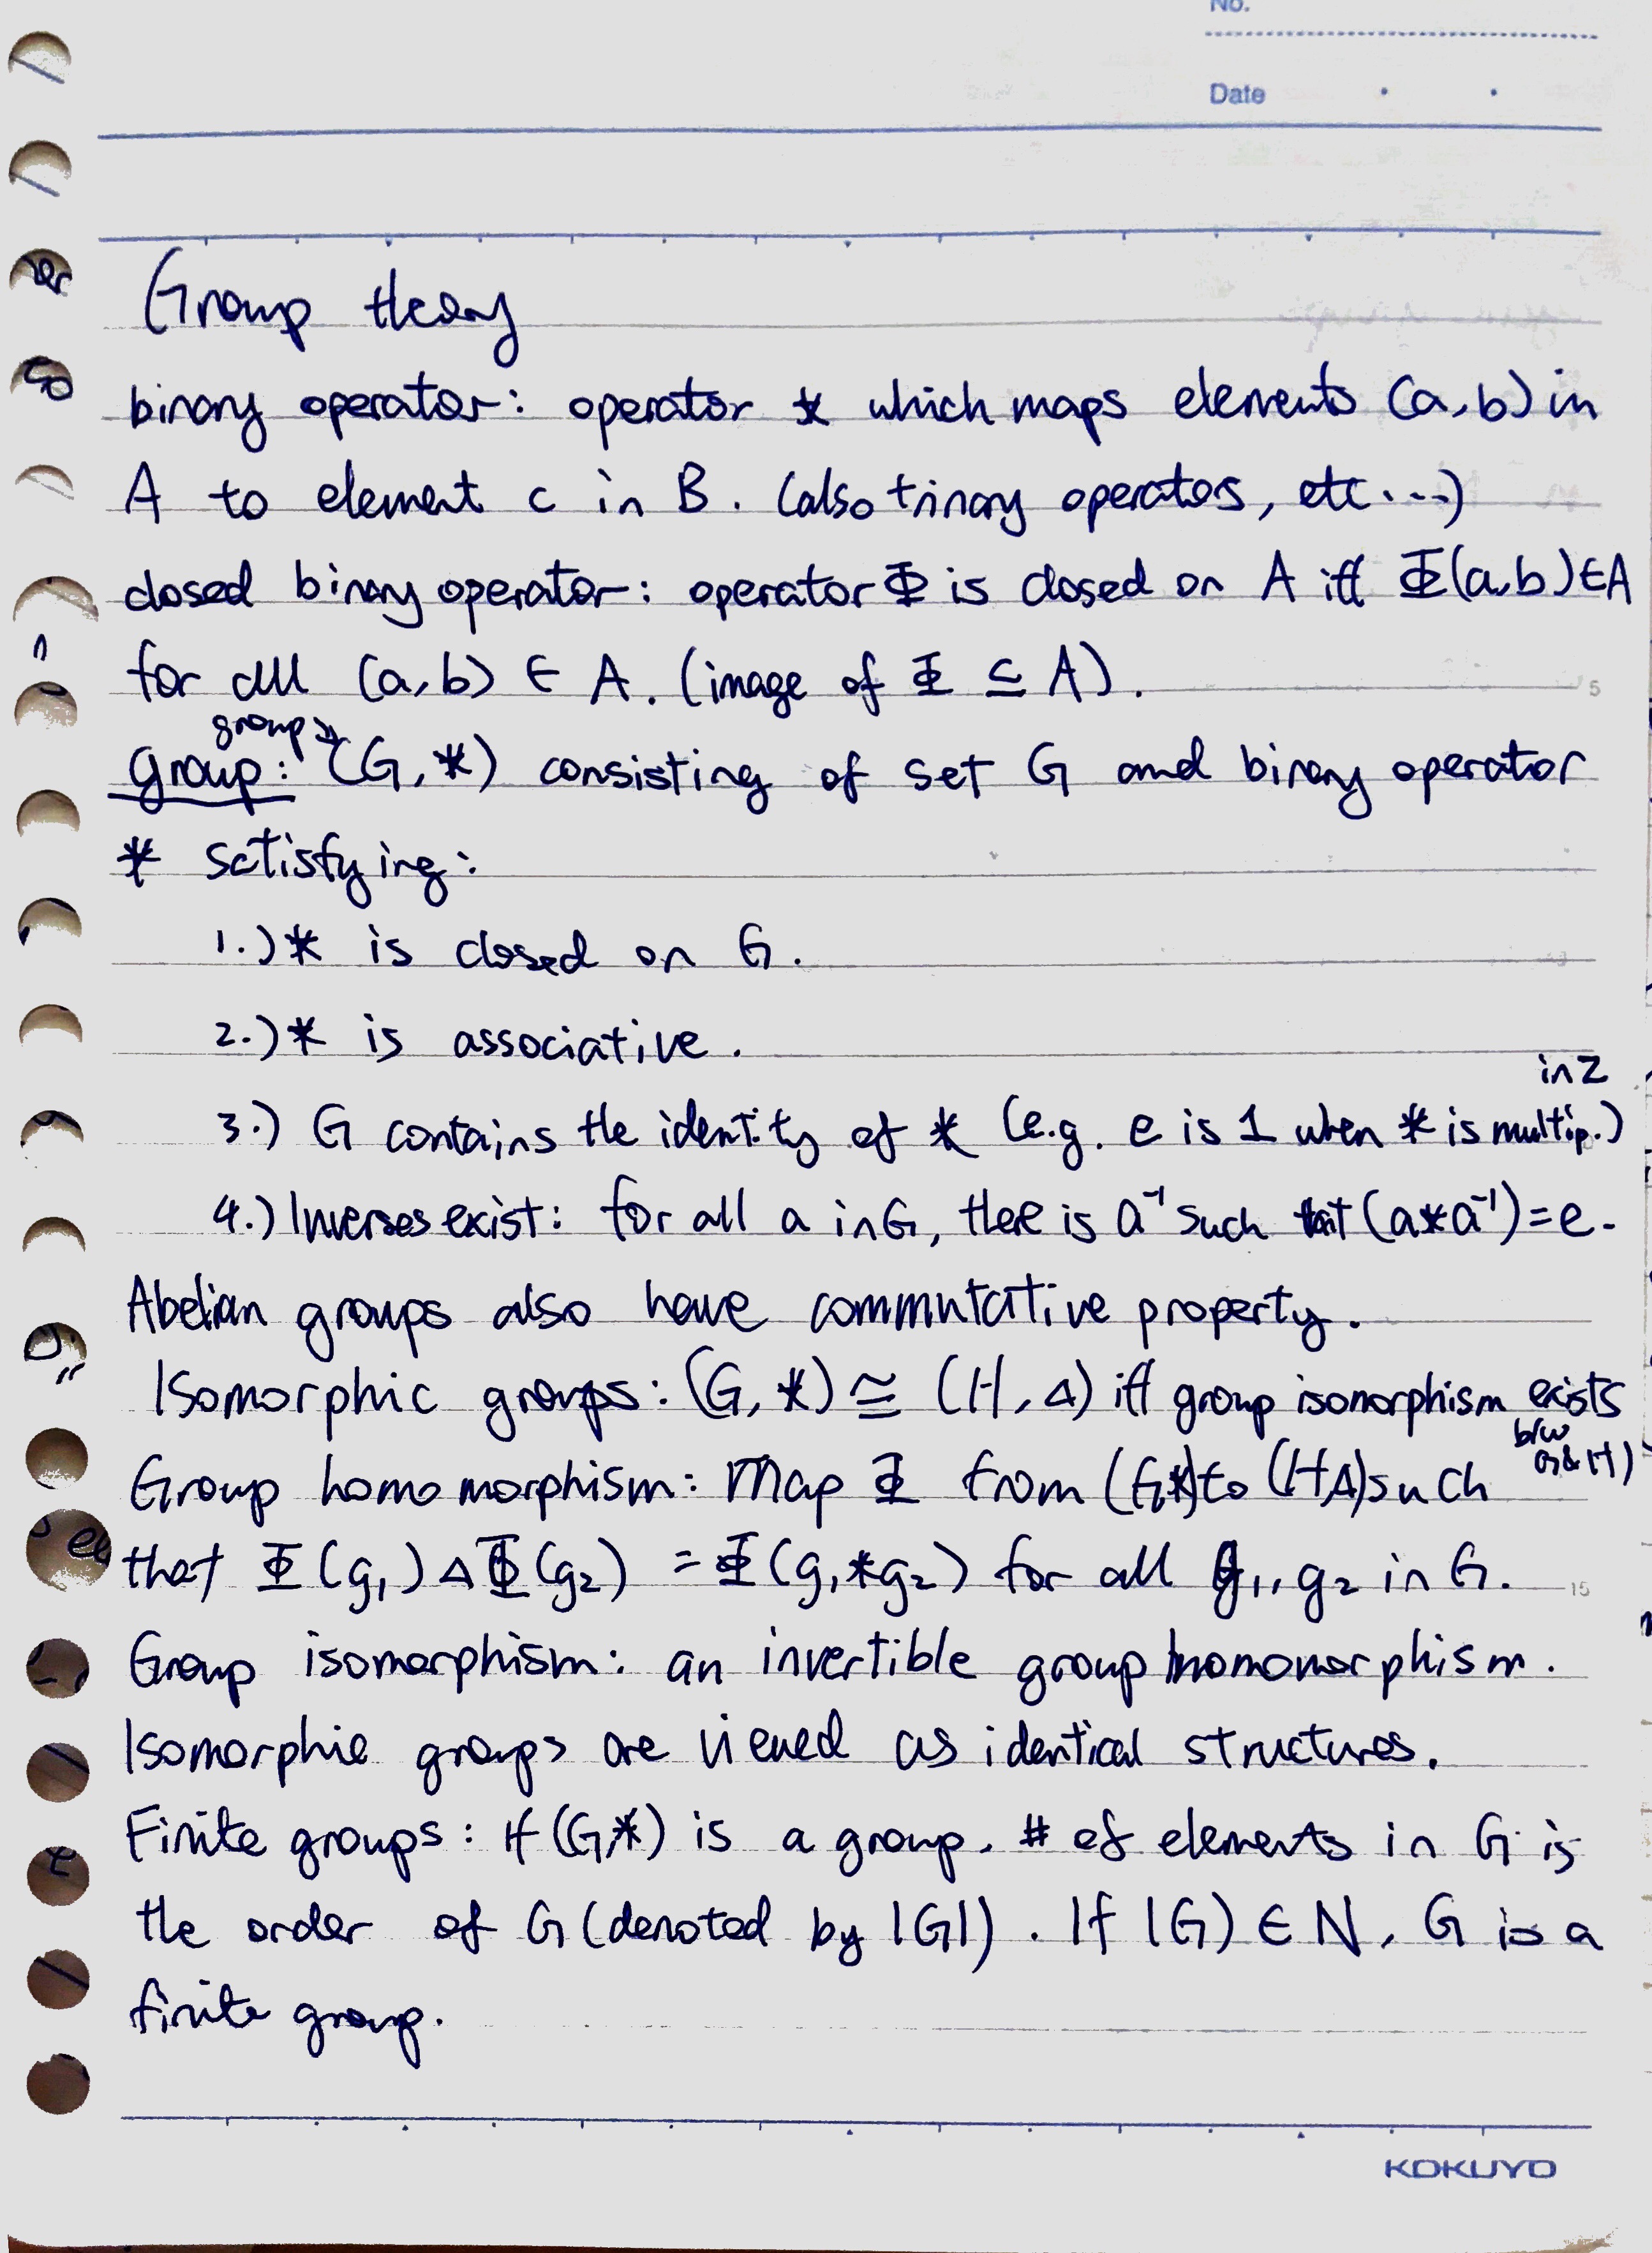 No.
Date
Group theory
binary operator: operator * which maps elements (a,b) in
A to element c in B. (also trinary operators, etc...)
closed binary operator: operator Φ is closed on A iff Φ(a,b)∈A
for all (a,b) ∈ A. (image of Φ ⊆ A).
group
group: (G,*) consisting of set G and binary operator
* satisfying:
1.) * is closed on G.
2.) * is associative.
in Z
3.) G contains the identity of * (e.g. e is 1 when * is multip.)
4.) Inverses exist: for all a in G, there is a⁻¹ such that (a*a⁻¹)=e.
Abelian groups also have commutative property.
Isomorphic groups: (G,*) ≅ (H,Δ) iff group isomorphism exists
b/w
G&H)
Group homomorphism: Map Φ from (G,*) to (H,Δ) such
that Φ(g₁)ΔΦ(g₂) = Φ(g₁*g₂) for all g₁, g₂ in G.
Group isomorphism: an invertible group homomorphism.
Isomorphic groups are viewed as identical structures.
Finite groups: If (G,*) is a group. # of elements in G is
the order of G (denoted by |G|). If |G| ∈ N, G is a
finite group.
5
15
KOKUYO